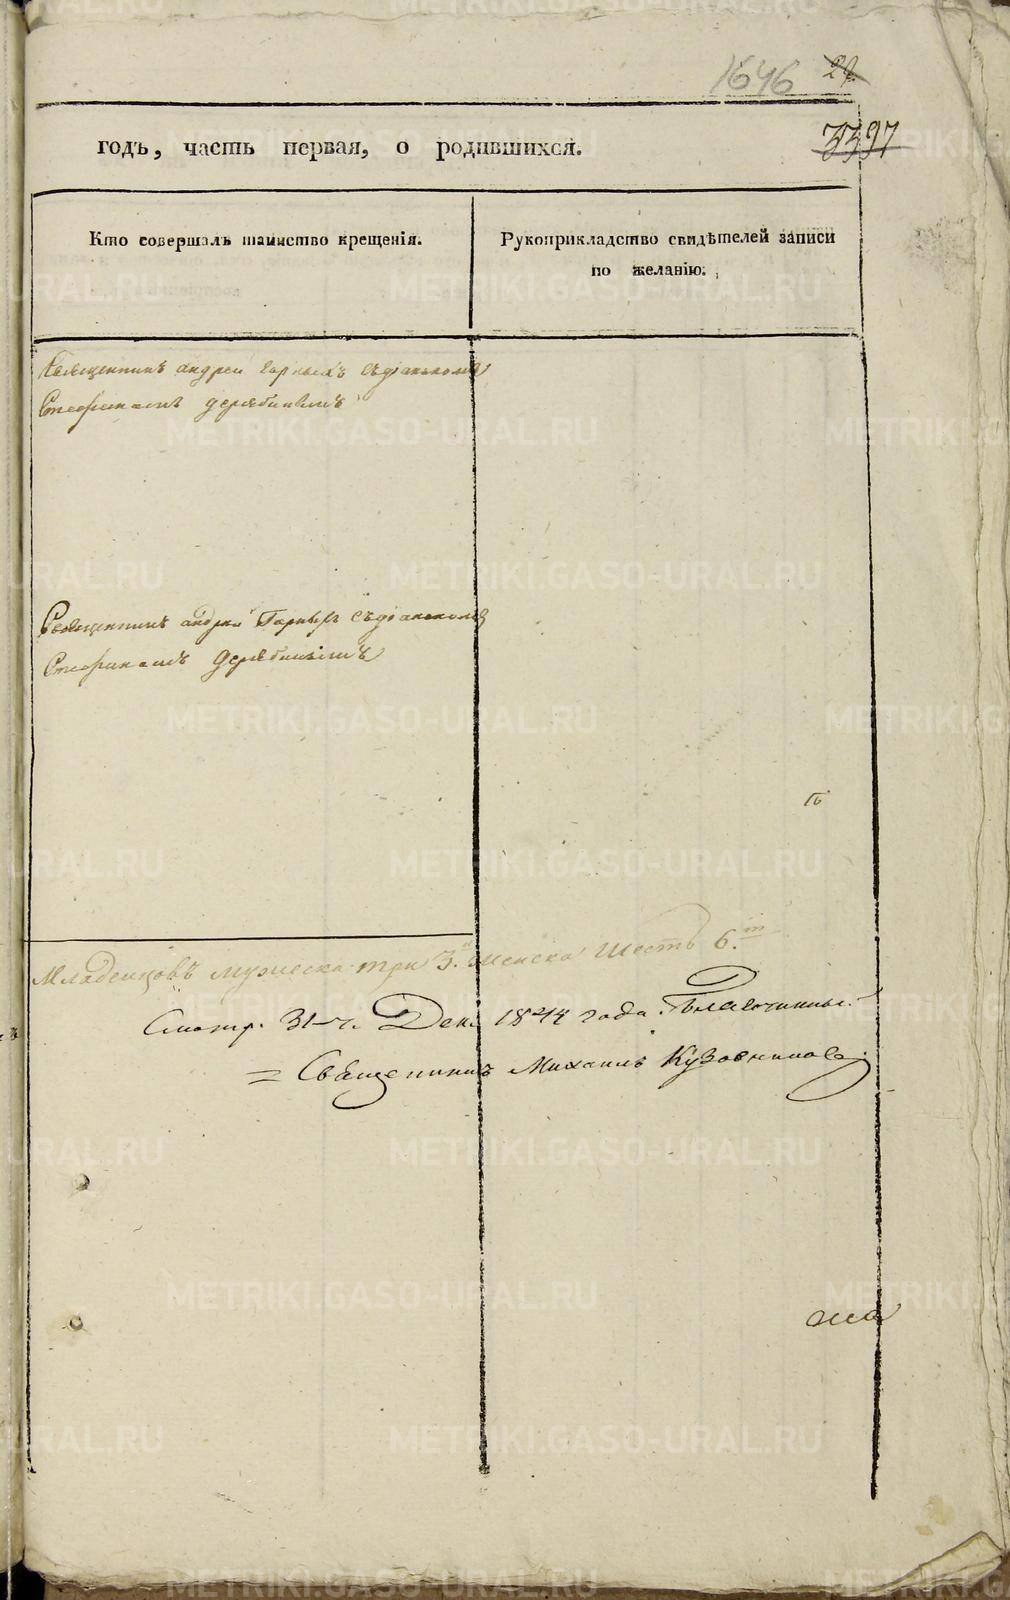 1646 29
3397
годъ, часть первая, о родившихся.
Кто совершалъ таинство крещенія.
Рукоприкладство свидѣтелей записи
по желанію.
Священникъ андрей Горныхъ съдіакономъ
Стефаномъ дерябинымъ
Священникъ андрей Горныхъ съдіакономъ
Стефаномъ Дерябинымъ
Младенцовъ мужеска три 3. женска шесть 6.
Смотр. 31-г. Дек. 1844 года. Благочинный
= Священникъ Михаилъ Кузовниковъ.
METRIKI.GASO-URAL.RU